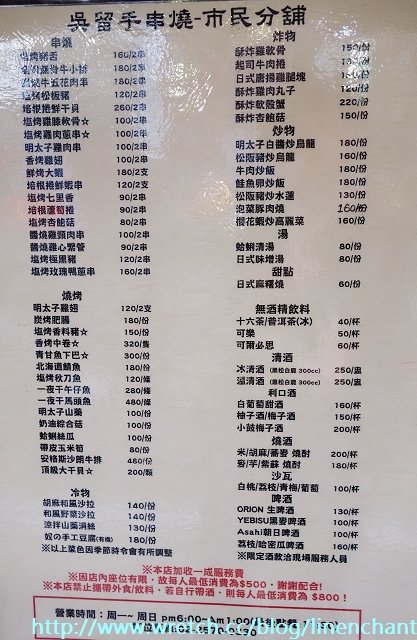 吳留手串燒-市民分舖
串燒
鹽烤豬舌 160/2串
180/2串
五花肉串 180/2串
鹽烤松板豬 120/2串
培根捲鮮干貝 260/2串
塩烤雞膝軟骨☆ 100/2串
塩烤雞肉蔥串☆ 100/2串
明太子雞肉串 100/2串
香烤雞翅 100/2串
鮮烤大蝦 180/2支
培根捲鮮蝦串 120/2支
塩烤七里香 90/2串
培根蘆筍捲 90/2串
塩烤杏鮑菇 80/2串
醬燒雞頸肉串 100/2串
醬燒雞心繫管 90/2串
塩烤極黑豬 120/2串
塩烤玫瑰鴨蔥串 160/2串
燒烤
明太子雞翅 120/2支
炭烤肥腸 180/份
塩烤香料豬☆ 150/份
香烤中卷☆ 320/隻
青甘魚下巴☆ 300/份
北海道鯖魚 180/份
塩烤秋刀魚 120/條
一夜干午仔魚 280/條
一夜干馬頭魚 480/條
明太子山藥 100/份
奶油綜合菇 100/份
蛤蜊絲瓜 100/份
帶皮玉米筍 80/份
安格斯沙朗牛排 480/份
頂級大干貝☆ 200/顆
冷物
胡麻和風沙拉 140/份
和風野菜沙拉 140/份
涼拌山藥消絲 130/份
奴の手工豆腐(有機) 180/份
※以上菜色因季節時令會有所調整
炸物
酥炸雞軟骨 150/份
起司牛肉捲 130/份
日式唐揚雞腿塊 180/份
酥炸雞肉丸子 120/份
酥炸軟殼蟹 220/份
酥炸杏鮑菇 150/份
炒物
明太子白醬炒烏龍 180/份
松阪豬炒烏龍 160/份
牛肉炒飯 180/份
鮭魚卵炒飯 180/份
松阪豬炒水蓮 130/份
泡菜豚肉燒 160/份
櫻花蝦炒高麗菜 160/份
湯
蛤蜊清湯 80/份
日式味增湯 80/份
甜點
日式麻糬燒 60/份
無酒精飲料
十六茶/普洱茶(冰) 40/杯
可樂 50/杯
可爾必思 60/杯
清酒
冰清酒 (黑松白鹿 300cc) 250/盅
溫清酒 (黑松白鹿 300cc) 250/盅
利口酒
白葡萄甜酒 160/杯
柚子酒/梅子酒 150/杯
小鼓梅子酒 200/杯
燒酒
米/胡麻/蕎麥 燒酎 200/杯
麥/芋/紫蘇 燒酎 180/杯
沙瓦
白桃/荔枝/青梅/葡萄 100/杯
啤酒
ORION 生啤酒 130/杯
YEBISU黑麥啤酒 100/杯
Asahi朝日啤酒 100/杯
荔枝/哈密瓜啤酒 160/杯
※限定酒款洽現場服務人員
※本店加收一成服務費
※因店內座位有限，故每人最低消費為$500，謝謝配合!
※本店禁止攜帶外食/飲料，若自行帶酒 則每人最低消費為 $800！
營業時間：周一~ 周日 pm6:00~Am1:00
http://www.wretch.cc/blog/linenchant